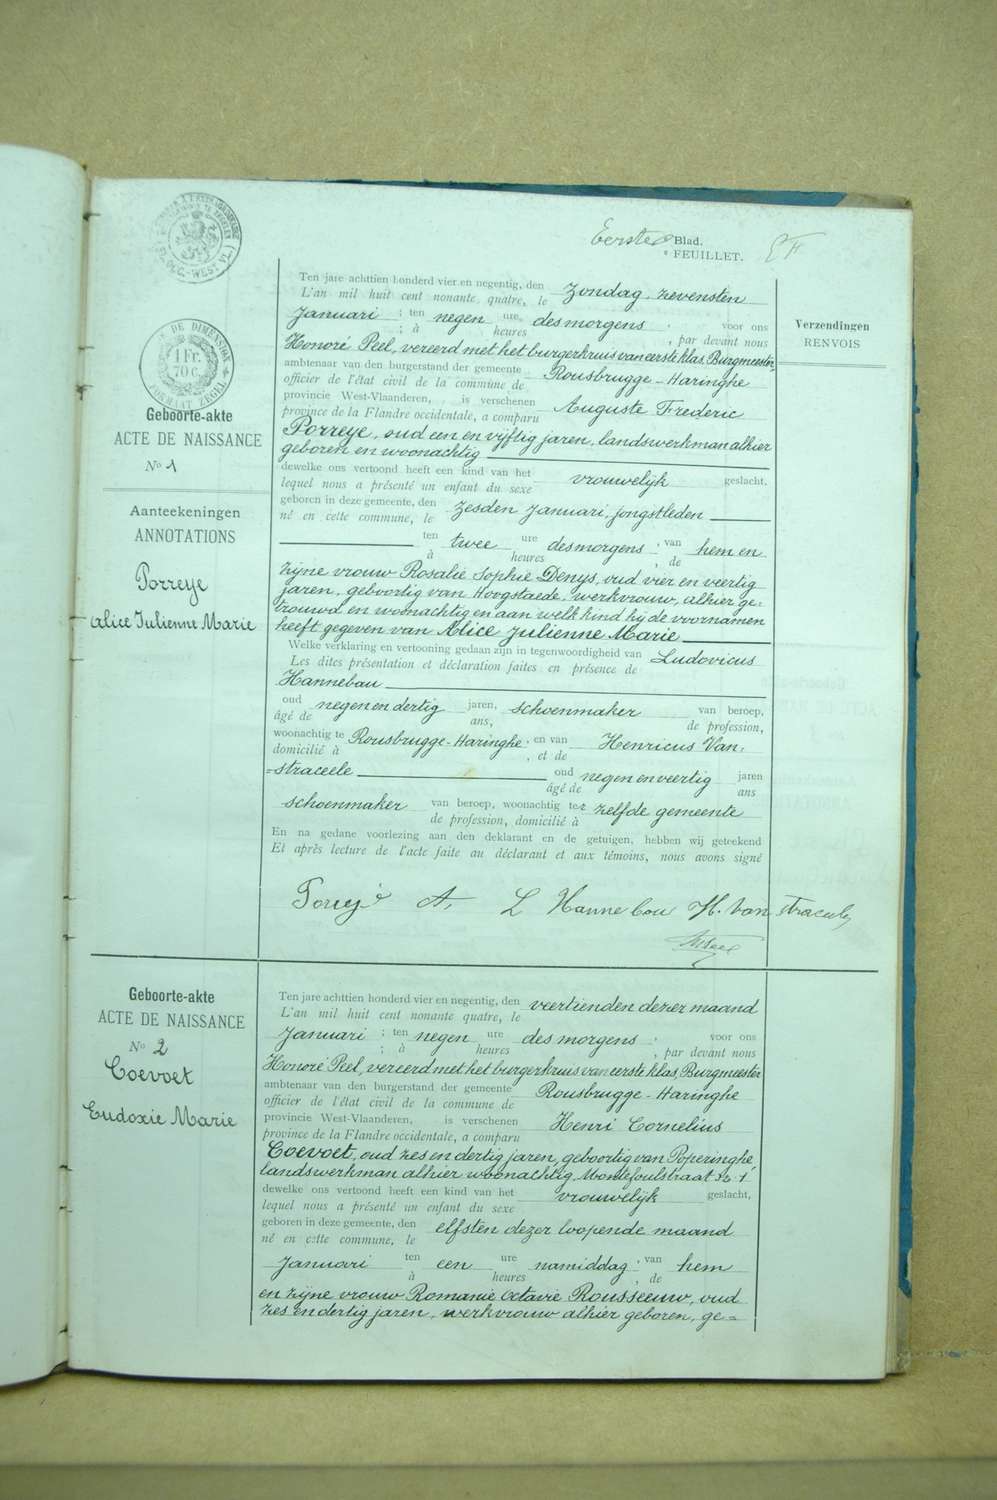 Eerste Blad.
FEUILLET.
DE DIMENSION
1 Fr.
70 c.
FORMAAT ZEGEL
Geboorte-akte
ACTE DE NAISSANCE
No 1
Aanteekeningen
ANNOTATIONS
Porreye
Alice Julienne Marie
Verzendingen
RENVOIS
Ten jare achttien honderd vier en negentig, den Zondag, zevensten
L'an mil huit cent nonante quatre, le
Januari ; ten negen ure, des morgens, voor ons
; à heures , par devant nous
Honoré Peel, vereerd met het burgerkruis van eerste klas, Burgmeester,
ambtenaar van den burgerstand der gemeente Rousbrugge-Haringhe
officier de l'état civil de la commune de
provincie West-Vlaanderen, is verschenen Auguste Frederic
province de la Flandre occidentale, a comparu
Porreye, oud een en vijftig jaren, landswerkman alhier
geboren en woonachtig
dewelke ons vertoond heeft een kind van het vrouwelijk geslacht,
lequel nous a présenté un enfant du sexe
geboren in deze gemeente, den zesden Januari, jongstleden
né en cette commune, le
ten twee ure des morgens, van hem en
à heures , de
zijne vrouw Rosalie Sophie Denys, oud vier en veertig
jaren, geboortig van Hoogstaede, werkvrouw, alhier ge-
trouwd en woonachtig en aan welk kind hij de voornamen
heeft gegeven van Alice Julienne Marie
Welke verklaring en vertooning gedaan zijn in tegenwoordigheid van Ludovicus
Les dites présentation et déclaration faites en présence de
Hannebau
oud negen en dertig jaren, schoenmaker van beroep,
âgé de ans, de profession,
woonachtig te Rousbrugge-Haringhe ; en van Henricus Van-
domicilié à , et de
=straceele oud negen en veertig jaren
âgé de ans
schoenmaker van beroep, woonachtig te zelfde gemeente
de profession, domicilié à
En na gedane voorlezing aan den deklarant en de getuigen, hebben wij geteekend
Et après lecture de l'acte faite au déclarant et aux témoins, nous avons signé
A. L Hannebau H. Van straceele
Geboorte-akte
ACTE DE NAISSANCE
No 2
Coevoet
Eudoxie Marie
Ten jare achttien honderd vier en negentig, den veertienden dezer maand
L'an mil huit cent nonante quatre, le
Januari ; ten negen ure des morgens, voor ons
; à heures , par devant nous
Honoré Peel, vereerd met het burgerkruis van eerste klas, Burgmeester
ambtenaar van den burgerstand der gemeente Rousbrugge-Haringhe
officier de l'état civil de la commune de
provincie West-Vlaanderen, is verschenen Henri Cornelius
province de la Flandre occidentale, a comparu
Coevoet, oud zes en dertig jaren, geboortig van Poperinghe,
landswerkman alhier woonachtig,
dewelke ons vertoond heeft een kind van het vrouwelijk geslacht,
lequel nous a présenté un enfant du sexe
geboren in deze gemeente, den elfsten dezer loopende maand
né en cette commune, le
Januari ten een ure namiddag, van hem
à heures , de
en zijne vrouw Romanie Octavie Rousseeuw, oud
zes en dertig jaren, werkvrouw alhier geboren, ge=